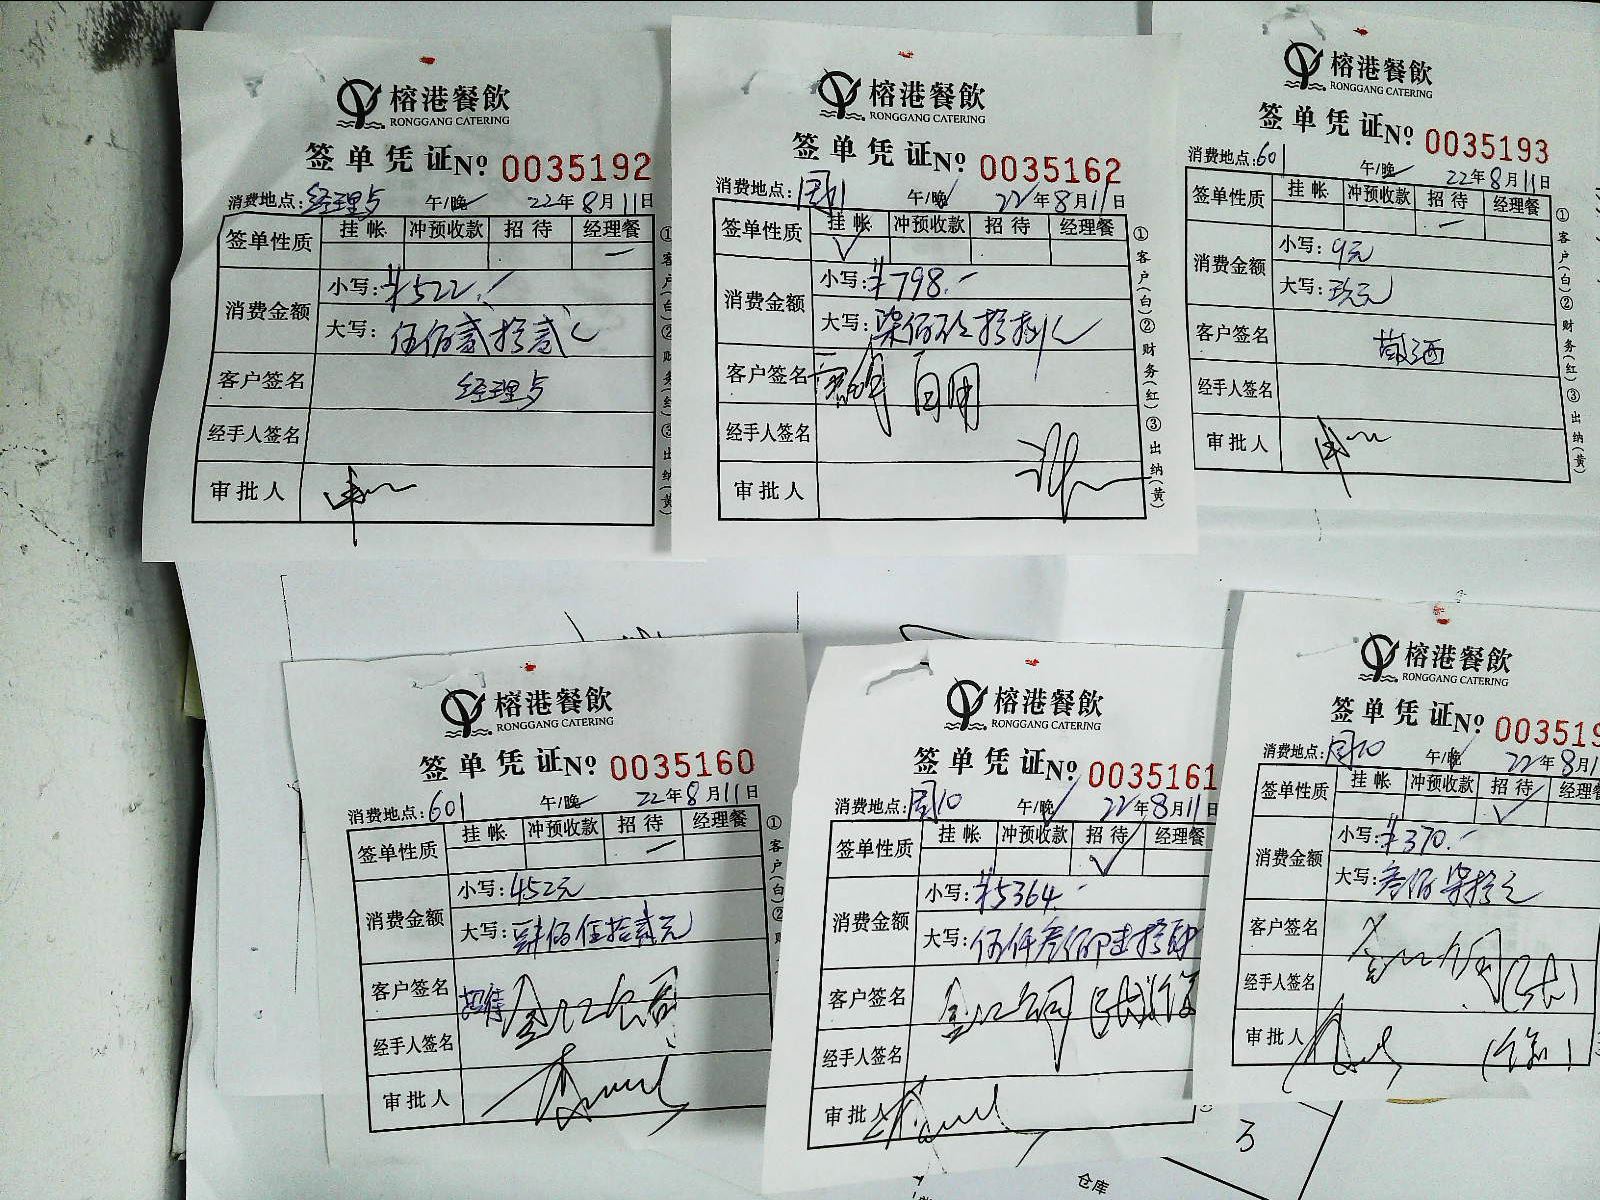 榕港餐飲
RONGGANG CATERING
签单凭证No 0035192
消费地点:经理 午/晚 22年8月11日
签单性质 挂帐 冲预收款 招待 经理餐
消费金额 小写:¥522.-
大写:伍佰贰拾贰
客户签名 经理
经手人签名
审批人
①客户(白)②财务(红)③出纳(黄)
榕港餐飲
RONGGANG CATERING
签单凭证No 0035162
消费地点: 午/晚 22年8月11日
签单性质 挂帐 冲预收款 招待 经理餐
消费金额 小写:¥798.-
大写:柒佰玖拾捌
客户签名
经手人签名
审批人
①客户(白)②财务(红)③出纳(黄)
榕港餐飲
RONGGANG CATERING
签单凭证No 0035193
消费地点:601 午/晚 22年8月11日
签单性质 挂帐 冲预收款 招待 经理餐
消费金额 小写:9元
大写:玖元
客户签名 散酒
经手人签名
审批人
①客户(白)②财务(红)③出纳(黄)
榕港餐飲
RONGGANG CATERING
签单凭证No 0035160
消费地点:601 午/晚 22年8月11日
签单性质 挂帐 冲预收款 招待 经理餐
消费金额 小写:452元
大写:肆佰伍拾贰元
客户签名 招待 公司
经手人签名
审批人
①客户(白)②
榕港餐飲
RONGGANG CATERING
签单凭证No 0035161
消费地点: 10 午/晚 22年8月11日
签单性质 挂帐 冲预收款 招待 经理餐
消费金额 小写:¥5364.-
大写:伍仟叁佰陆拾肆
客户签名 公司
经手人签名
审批人
榕港餐飲
RONGGANG CATERING
签单凭证No 003519
消费地点: 10 午/晚 22年8月1
签单性质 挂帐 冲预收款 招待 经
消费金额 小写:¥370.-
大写:叁佰柒拾元
客户签名
经手人签名
审批人
3
仓库